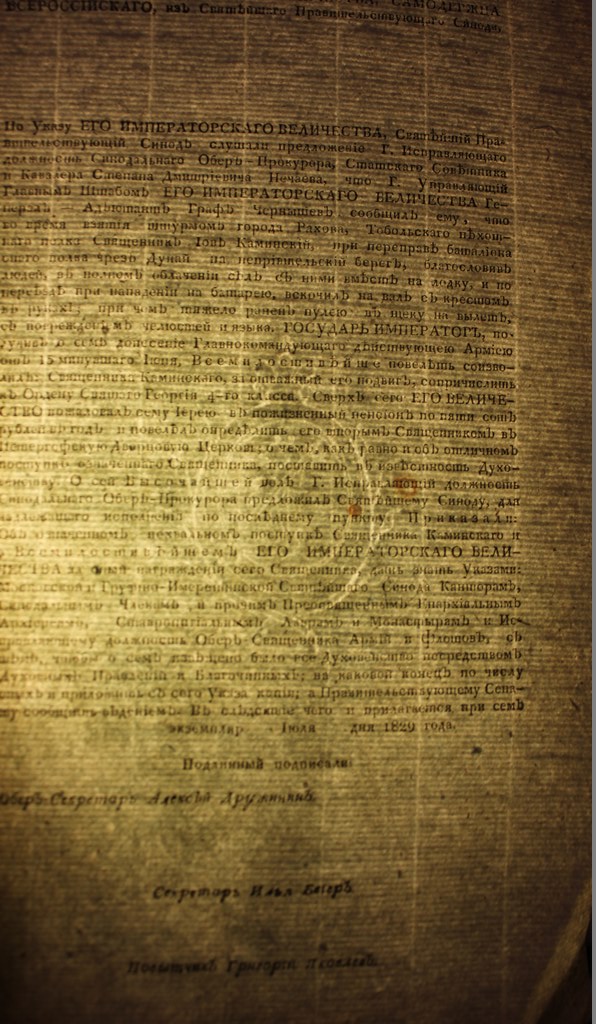 САМОДЕРЖЦА
ВСЕРОССІЙСКАГО, изъ Святѣйшаго Правительствующаго Синода,
По Указу ЕГО ИМПЕРАТОРСКАГО ВЕЛИЧЕСТВА, Святѣйшій Пра-
вительствующій Синодъ слушали предложеніе Г. Исправляющаго
должность Синодальнаго Оберъ-Прокурора, Статскаго Совѣтника
и Кавалера Степана Дмитріевича Нечаева, что Г. Управляющій
Главнымъ Штабомъ ЕГО ИМПЕРАТОРСКАГО ВЕЛИЧЕСТВА Ге-
нералъ-Адъютантъ Графъ Чернышевъ сообщилъ ему, что
во время взятія штурмомъ города Рахова, Тобольскаго пѣхот-
наго полка Священникъ Іовъ Каминскій, при переправѣ баталіона
сего полка чрезъ Дунай на непріятельскій берегъ, благословивъ
людей, въ полномъ облаченіи сѣлъ съ ними вмѣстѣ на лодку, и по
переѣздѣ при нападеніи на батарею, вскочилъ на валъ съ крестомъ
въ рукахъ; при чемъ тяжело раненъ пулею въ щеку на вылетъ,
съ поврежденіемъ челюстей и языка. ГОСУДАРЬ ИМПЕРАТОРЪ, по-
лучивъ о семъ донесеніе Главнокомандующаго дѣйствующею Арміею
отъ 15 минувшаго Іюня, Всемилостивѣйше повелѣть соизво-
лилъ: Священника Каминскаго, за отважный его подвигъ, сопричислить
къ Ордену Святаго Георгія 4-го класса. Сверхъ сего ЕГО ВЕЛИЧЕ-
СТВО пожаловалъ сему Іерею въ пожизненный пенсіонъ по пяти сотъ
рублей въ годъ и повелѣлъ опредѣлить его вторымъ Священникомъ въ
Петергофскую Дворцовую Церковь; о чемъ, какъ равно и объ отличномъ
поступкѣ означеннаго Священника, поставить въ извѣстность Духо-
венство. О сей Высочайшей волѣ Г. Исправляющій должность
Синодальнаго Оберъ-Прокурора предложилъ Святѣйшему Синоду, для
надлежащаго исполненія по послѣднему пункту. Приказали:
Объ означенномъ похвальномъ поступкѣ Священника Каминскаго и
о Всемилостивѣйшемъ ЕГО ИМПЕРАТОРСКАГО ВЕЛИ-
ЧЕСТВА за оный награжденіи сего Священника, дать знать Указами:
Московской и Грузино-Имеретинской Святѣйшаго Синода Конторамъ,
Синодальнымъ Членамъ и прочимъ Преосвященнымъ Епархіальнымъ
Архіереямъ, Ставропигіальнымъ Лаврамъ и Монастырямъ и Ис-
правляющему должность Оберъ-Священника Арміи и Флотовъ, съ
тѣмъ, чтобы о семъ извѣщено было все Духовенство посредствомъ
Духовныхъ Правленій и Благочинныхъ; на каковой конецъ по числу
оныхъ и приложить съ сего Указа копіи; а Правительствующему Сена-
ту сообщить вѣденіемъ. Въ слѣдствіе чего и прилагается при семъ
экземпляр Іюля дня 1829 года.
Подлинный подписали:
Оберъ-Секретарь Алексѣй Дружининъ.
Секретарь Илья Бееръ.
Повытчикъ Григорій Яковлевъ.